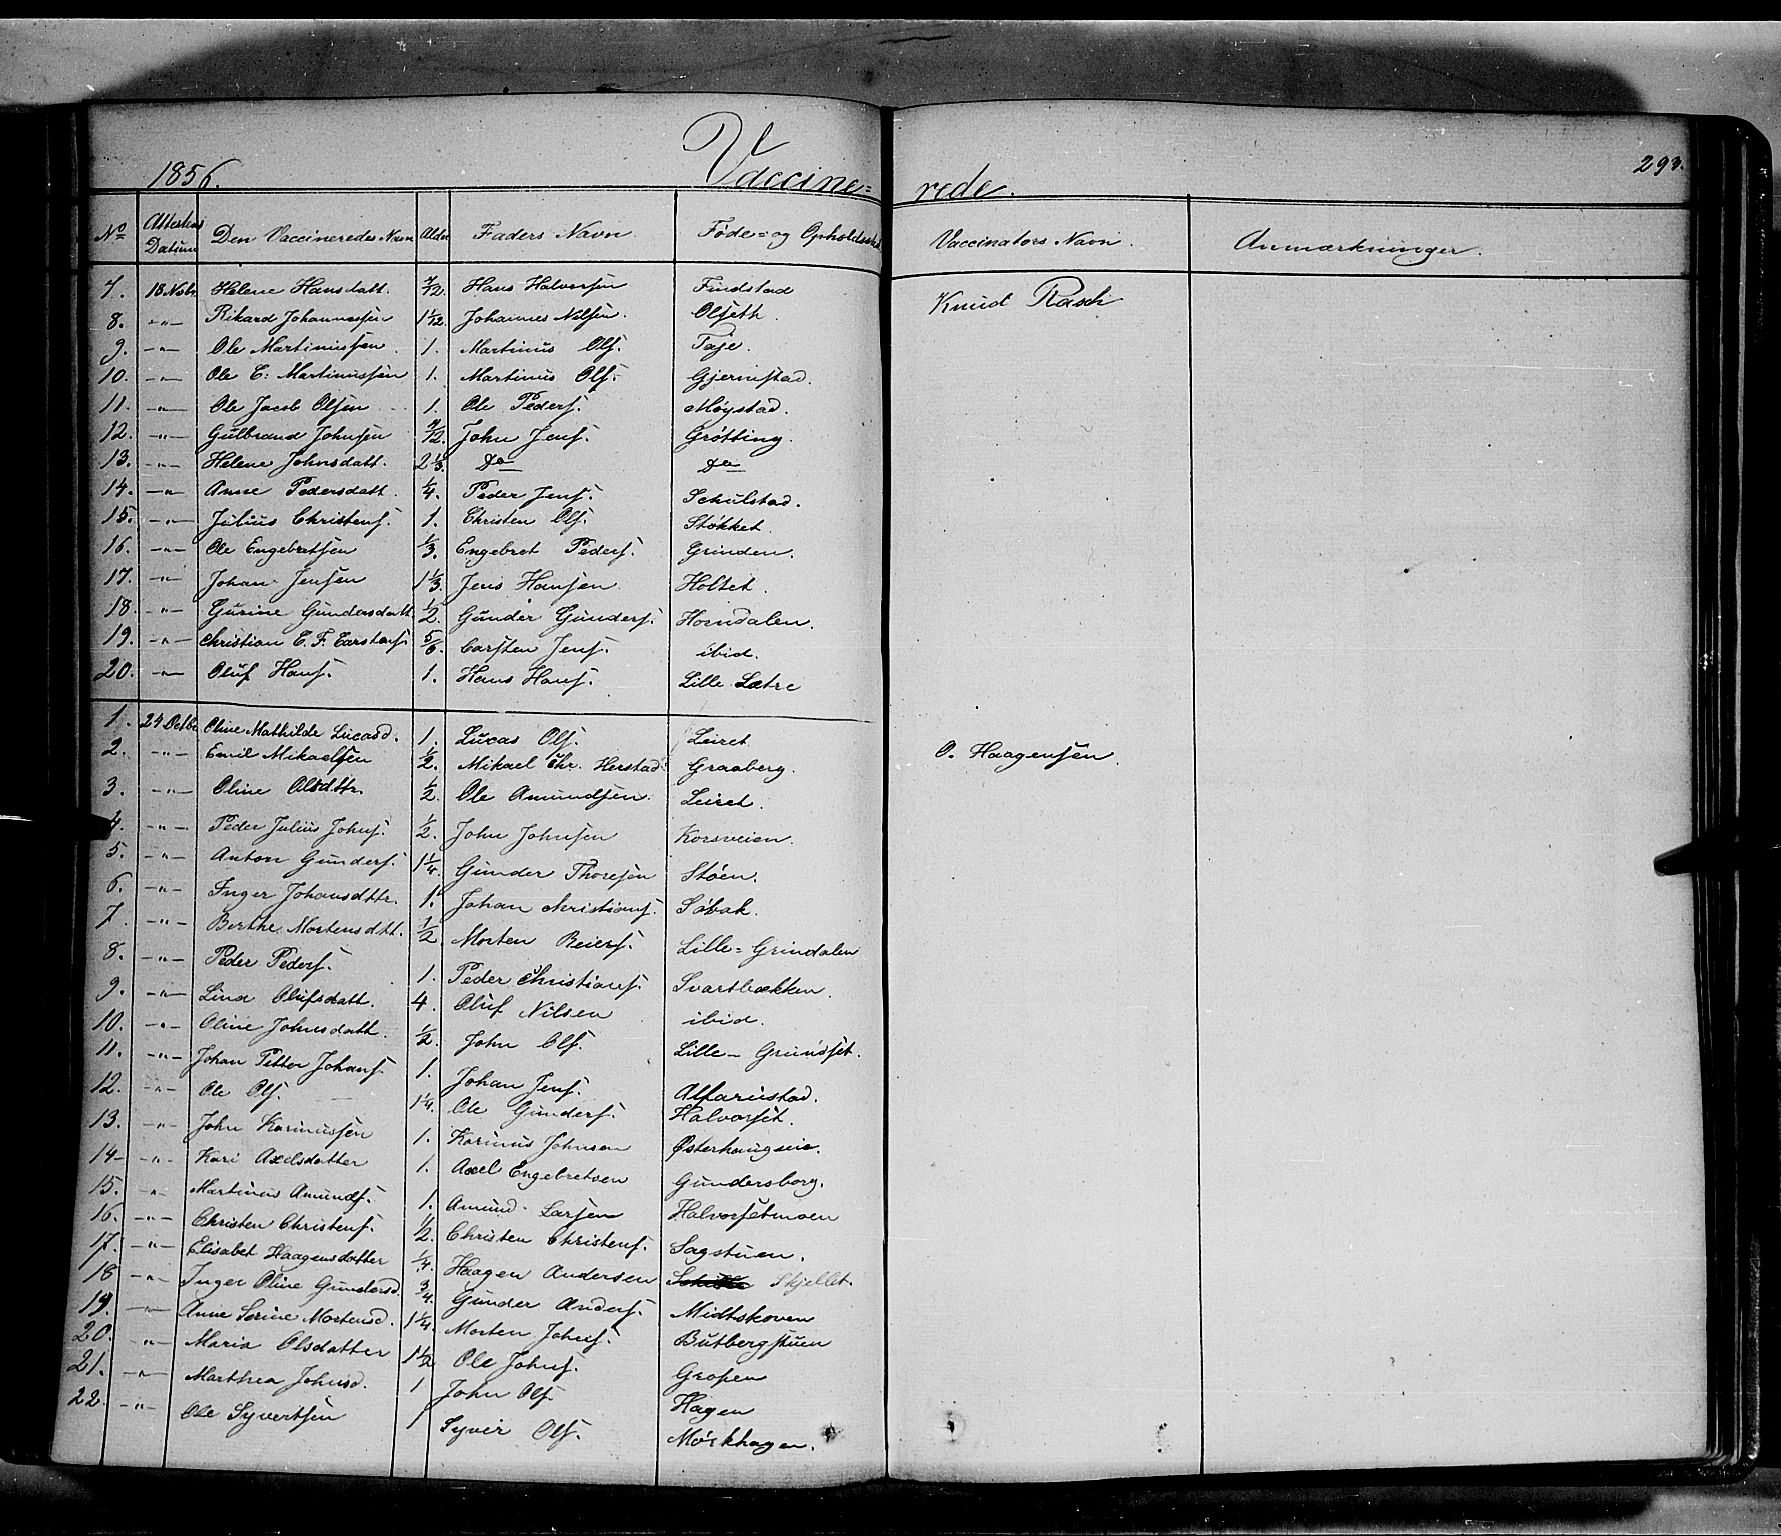 1856. Vaccine= rede. 293.
No Attestens Datum Den Vaccineredes Navn Alder Faders Navn Føde= og Opholdssted Vaccinators Navn. Anmærkninger.
7. 18 Novbr Helene Hansdatt. 7/12. Hans Halvorsen Findstad Knud Rasch
8. -"- Rikard Johannessen 1 1/12. Johannes Nilsen. Olseth.
9. -"- Ole Martinussen. 1. Martinus Ols. Faje.
10. -"- Ole C. Martinussen 1. Martinus Ols. Gjernstad.
11. -"- Ole Jacob Olsen 1. Ole Peders. Møystad.
12. -"- Gulbrand Johnsen 7/12. John Jens. Grötting.
13. -"- Helene Johnsdatt. 2 1/3. Do Do
14. -"- Anne Pedersdatt. 1/4. Peder Jens. Schulstad.
15. -"- Julius Christens. 1. Christen Ols. Stökket.
16. -"- Ole Engebretsen 1/3. Engebret Peders. Grinden.
17. -"- Johan Jensen 1 1/3. Jens Hansen Holtet.
18. -"- Gurine Gundersdatt. 1/2. Gunder Gunders. Horndalen.
19. -"- Christian C. F. Carstens. 5/6. Carsten Jens. ibid.
20. -"- Oluf Hans. 1. Hans Hans. Lille Sætre
1. 24 Octbr Oline Mathilde Lucasd. 1. Lucas Ols. Leiret O. Haagensen.
2. -"- Emil Mikaelsen 1/2. Mikael Chr. Herstad. Graaberg.
3. -"- Oline Olsdttr. 1/2. Ole Amundsen. Leiret.
4. -"- Peder Julius Johns. 1/2. John Johnsen Korsveien.
5. -"- Anton Gunders. 1 1/4. Gunder Thoresen Støen.
6. -"- Inger Johansdttr. 1. Johan Christians. Søbak.
7. -"- Berthe Mortensdtt. 1/2. Morten Reiers. Lille= Grindalen
8. -"- Peder Peders. 1. Peder Christians. Svartbækken.
9. -"- Lina Olufsdatt. 4. Oluf Nilsen ibid.
10. -"- Oline Johnsdatt. 1/2. John Ols. Lille- Grundset.
11. -"- Johan Petter Johans. 1. Johan Jens. Alfariistad.
12. -"- Ole Ols. 1 1/4. Ole Gunders. Halvorset.
13. -"- John Karinussen 1. Karinus Johnsen Østerhaugseie.
14- -"- Kari Axelsdatter 1. Axel Engebretsen Gundersborg.
15. -"- Martinus Amunds. 1. Amund Larsen Halvorsetmoen
16. -"- Christen Christens. 1/2. Christen Christens. Sagstuen.
17. -"- Elisabet Haagensdatter 1/4. Haagen Andersen Skjellet.
18 -"- Inger Oline Gundersd 3/4. Gunder Anders. Midtskoven
19. -"- Anne Serine Mortensd. 1 1/4. Morten Johns. Butbergstuen
20. -"- Maria Olsdatter 1 1/2 Ole Johns. Grosen
21. -"- Marthea Johnsd. 1 John Ols. Hagen
22. -"- Ole Syvertsen 1 Syver Ols. Mørkhagen.